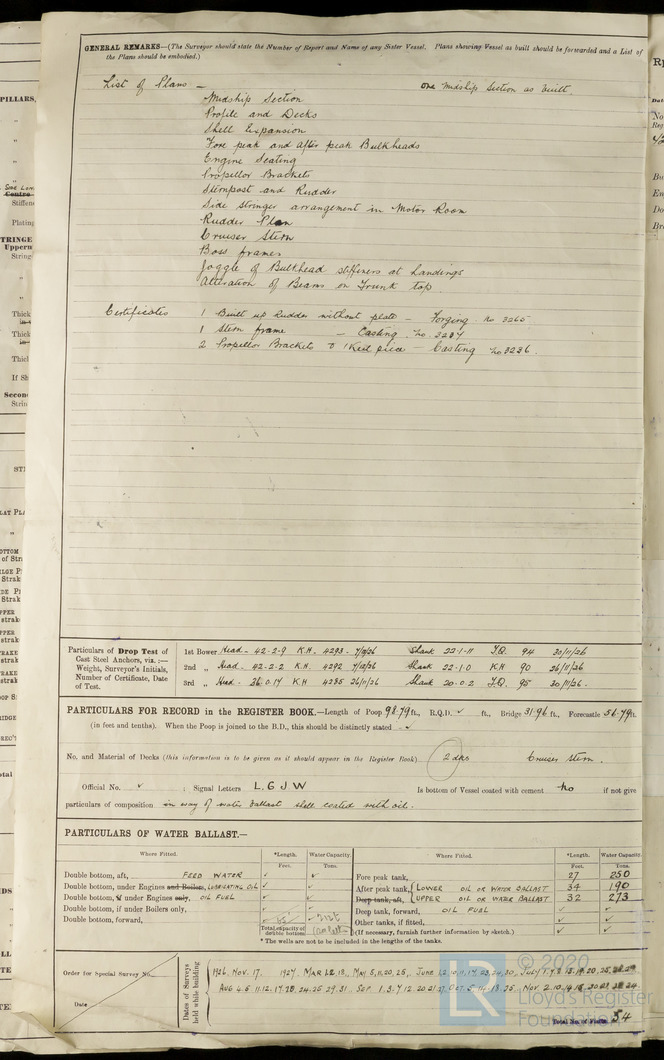 GENERAL REMARKS—(The Surveyor should state the Number of Report and Name of any Sister Vessel. Plans showing Vessel as built should be forwarded and a List of
the Plans should be embodied.)
List of Plans — One Midship Section as built
Midship Section
Profile and Decks
Shell Expansion
Fore peak and After peak Bulkheads
Engine Seating
Propellor Brackets
Sternpost and Rudder
Side Stringer arrangement in Motor Room
Rudder Plan
Cruiser Stern
Boss frames
Joggle of Bulkhead stiffeners at Landings
Alteration of Beams on Trunk top.
Certificates 1 Built up Rudder without plate — Forging. No 3265
1 Stern frame — Casting. No. 3237
2 Propellor Brackets & 1 Keel piece — Casting No 3236.
Particulars of Drop Test of
Cast Steel Anchors, viz.:—
Weight, Surveyor's Initials,
Number of Certificate, Date
of Test.
1st Bower Head - 42-2-9 K.H. 4293 - Shank 22-1-11 J.Q. 94 30/11/26
2nd „ Head - 42-2-2 K.H. 4292 7/12/26 Shank 22-1-0 K.H 90 26/11/26
3rd „ Head - K.H 4285 26/11/26 Shank 20-0-2 J.Q. 95 30/11/26.
PARTICULARS FOR RECORD in the REGISTER BOOK.—Length of Poop 98.79 ft., R.Q.D. ✓ ft., Bridge 31.96 ft., Forecastle 56.79 ft.
(in feet and tenths). When the Poop is joined to the B.D., this should be distinctly stated - ✓
No. and Material of Decks (this information is to be given as it should appear in the Register Book) 2 dks Cruiser Stern.
Official No. ✓ ; Signal Letters L.G J W Is bottom of Vessel coated with cement No if not give
particulars of composition in way of water ballast shell coated with oil.
PARTICULARS OF WATER BALLAST.—
Where Fitted. *Length. Water Capacity. Where Fitted. *Length. Water Capacity
Feet. Tons. Feet. Tons.
Double bottom, aft, FEED WATER ✓ ✓ Fore peak tank, 27 250
Double bottom, under Engines and Boilers, LUBRICATING OIL ✓ ✓ After peak tank, LOWER OIL OR WATER BALLAST 34 190
Double bottom, if under Engines only, OIL FUEL ✓ ✓ Deep tank, aft, UPPER OIL OR WATER BALLAST 32 273
Double bottom, if under Boilers only, ✓ ✓ Deep tank, forward, OIL FUEL ✓ ✓
Double bottom, forward, Other tanks, if fitted, ✓ ✓
Total capacity of double bottom (If necessary, furnish further information by sketch.) ✓ ✓
* The wells are not to be included in the lengths of the tanks.
Order for Special Survey No.
Date
Dates of Surveys
held while building
1926. Nov. 17. 1927. MAR 1.2.18. MAY 5,11,20,25,
Total No. of Visits 54
© 2020
LR
Lloyd's Register
Foundation